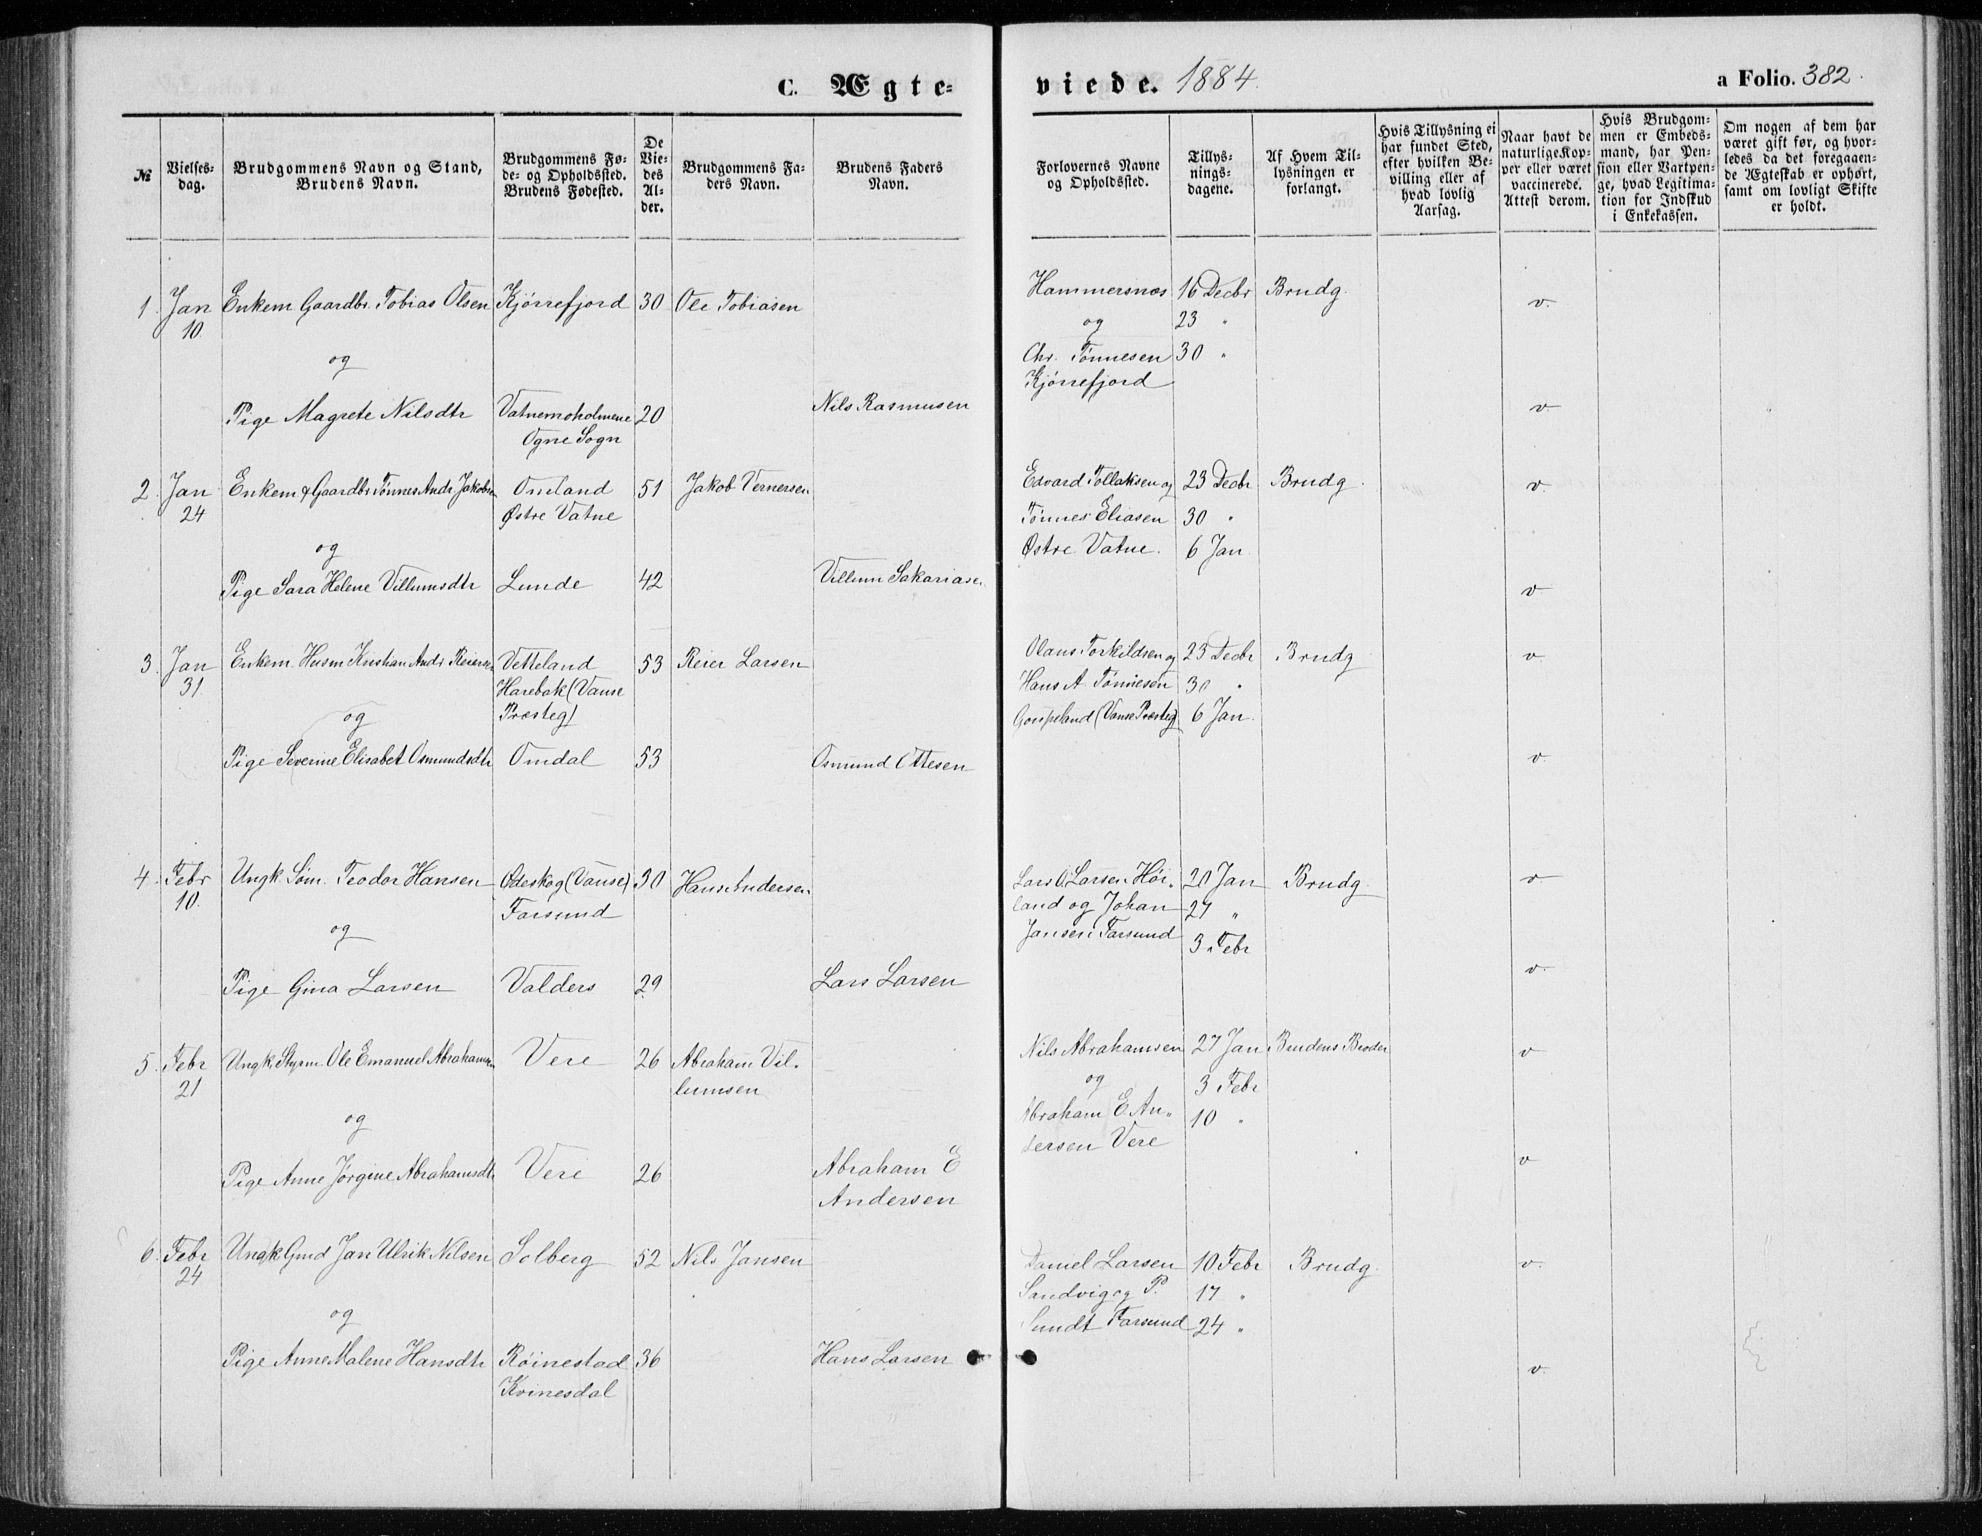 C. Ægte-
viede. 1884.
a Folio. 382.
№
Vielses-
dag.
Brudgommens Navn og Stand,
Brudens Navn.
Brudgommens Fø-
de- og Opholdssted.
Brudens Fødested.
De
Vie-
des
Al-
der.
Brudgommens Fa-
ders Navn.
Brudens Faders
Navn.
Forlovernes Navne
og Opholdssted.
Tillys-
nings-
dagene.
Af Hvem Til-
lysningen er
forlangt.
Hvis Tillysning ei
har fundet Sted,
efter hvilken Be-
villing eller af
hvad lovlig
Aarsag.
Naar havt de
naturlige Kop-
per eller været
vaccinerede.
Attest derom.
Hvis Brudgom-
men er Embeds-
mand, har Pen-
sion eller Vartpen-
ge, hvad Legitima-
tion for Indskud
i Enkekassen.
Om nogen af dem har
været gift før, og hvor-
ledes da det foregaaen-
de Ægteskab er ophørt,
samt om lovligt Skifte
er holdt.
1. Jan Enkem Gaardbr. Tobias Olsen Kjørrefjord 30 Ole Tobiasen Hammersnæs 16 Decbr Brudg. v.
10. og 23 "
og Chr. Tønnesen 30 "
Kjørrefjord
Pige Magrete Nilsdtr Vatnemoholmene 20 Nils Rasmusen v
Ogne Sogn
2. Jan Enkem & Gaardbr Tønnes Andr. Jakobsen Omland 51 Jakob Vernersen Edvard Tollaksen og 23 Decbr Brudg. v.
24 Østre Vatne Tønnes Eliasen 30 "
og Østre Vatne. 6 Jan
Pige Sara Helene Villumsdtr Lunde 42 Villum Sakariasen v
3. Jan Enkem. Husm Kristian Andr. Reiersen Vetteland 53 Reier Larsen Olaus Torkildsen og 23 Decbr Brudg v.
31 Harebak (Vanse Hans A Tønnesen 30 "
og Præsteg) (Vanse Præsteg) 6 Jan.
Pige Severine Elisabet Osmundsdtr Omdal 53 Osmund Ottesen v
4. Febr Ungk. Søm. Teodor Hansen Ødeskog (Vanse) 30 Hans Andersen Lars O. Larsen Høi- 20 Jan Brudg. v
10. Farsund land og Johan 27 "
og Jansen Farsund 3 Febr
Pige Gina Larsen Valders 29 Lars Larsen v.
5. Febr Ungk. Styrm. Ole Emanuel Abrahamsen Vere 26 Abraham Vil- Nils Abrahamsen 27 Jan Brudens Broder v
21 lumsen og 3 Febr
og Abraham E. An- 10 "
dersen Vere
Pige Anne Jørgine Abrahamsdtr Vere 26 Abraham E v
Andersen
6. Febr Ungk Gmd Jan Ulrik Nilsen Solberg 52 Nils Jansen Daniel Larsen 10 Febr Brudg. v.
24 Sandvig og P. 17 "
og Sundt Farsund 24 "
Pige Anne Malene Hansdtr Røinestad 36 Hans Larsen v.
Kvinesdal